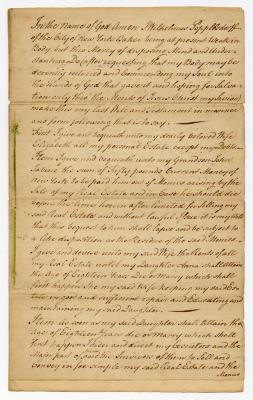 In the name of God Amen I Wilhelmus Poppledorff
of the City of New York Baker being at present Weak in
Body but thro Mercy of disposing Mind and Under
standing Do (after requesting that my Body may be
decently interred and Commending my Soul into
the Hands of God that gave it and hoping for Salva
tion only thro the Merits of Jesus Christ my Saviour)
make this my Last Will and Testament in manner
and form following that is to say
First I give and bequeath unto my dearly beloved Wife
Elizabeth all my personal Estate except my
Item I give and bequeath unto my Grandson
the sum of Fifty pounds Current Money of
New York to be paid him out of Monies arising by the
Sale of my Real Estate and in Case he should die
before the time herein after limited for Selling my
said Real Estate and without lawful Issue it is my Will
that this bequest to him shall lapse and be subject to
a like disposition as the Residue of the said Monies
I give and devise unto my said Wife the Rents of all
my Real Estate until my Daughter Anna shall attain
the Age of Eighteen Years die or Marry which shall
first happen She my said Wife keeping my said Es
tate in good and sufficient repair and Educating and
maintaining my said Daughter
Item As soon as my said Daughter shall Attain the
Age of Eighteen Years die or marry which shall
first happen I order and direct my Executors and the
Major part of them and the Survivor of them to Sell and
Convey in fee simple my said Real Estate and the
Monies